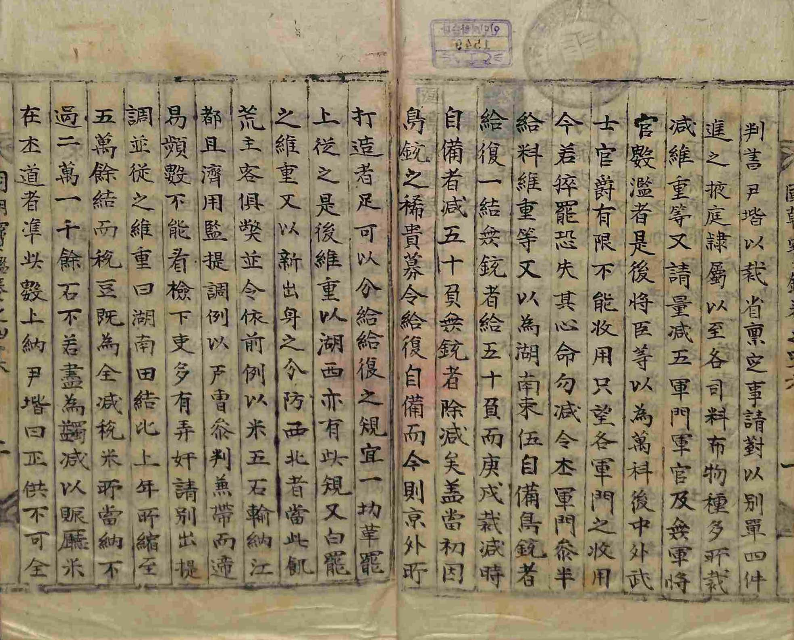 判書尹堦以裁省稟定事請對以別單四件
進之掖庭隷屬以至各司料布物種多所裁
减維重等又請量减五軍門軍官及無軍將
官數濫者是後將臣等以為萬科後中外武
士官爵有限不能收用只望各軍門之收用
今若猝罷恐失其心命勿减令本軍門叅半
給料維重等又以為湖南束伍自備鳥銃者
給復一結無銃者給五十負而庚戌裁减時
自備者减五十負無銃者除减矣盖當初因
鳥銃之稀貴募令給復自備而今則京外所
打造者足可以分給給復之規宜一切革罷
上從之是後維重以湖西亦有此規又白罷
之維重又以新出身之分防西北者當此飢
荒主客俱弊並令依前例以米五石輸納江
都且濟用監提調例以戶曹叅判兼帶而遞
易頻數不能看檢下吏多有弄奸請別出提
調並從之維重曰湖南田結比上年所縮至
五萬餘結而稅豆旣為全减稅米所當納不
過二萬一千餘石不若盡為蠲减以賑廳米
在本道者準此數上納尹堦曰正供不可全